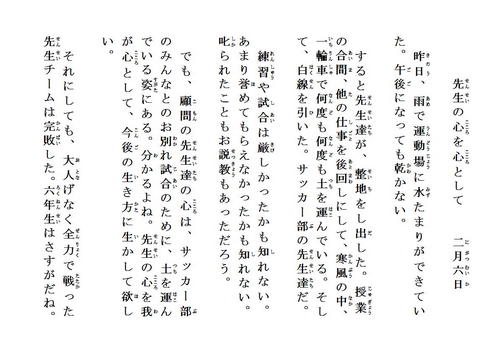 先生の心を心として　　二月六日
　昨日、雨で運動場に水たまりができてい
た。午後になっても乾かない。
　すると先生達が、整地をし出した。授業
の合間、他の仕事を後回しにして、寒風の中、
一輪車で何度も何度も土を運んでいる。そし
て、白線を引いた。サッカー部の先生達だ。
　練習や試合は厳しかったかも知れない。
あまり誉めてもらえなかったかも知れない。
叱られたこともお説教もあっただろう。
　でも、顧問の先生達の心は、サッカー部
のみんなとのお別れ試合のために、土を運ん
でいる姿にある。分かるよね。先生の心を我
が心として、今後の生き方に生かして欲し
い。
　それにしても、大人げなく全力で戦った
先生チームは完敗した。六年生はさすがだね。